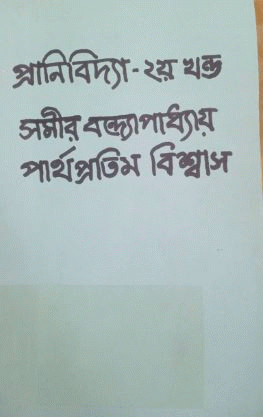 প্রানিবিদ্যা - ২য় খন্ড
সমীর বন্দ্যোপাধ্যায়
পার্থপ্রতিম বিশ্বাস